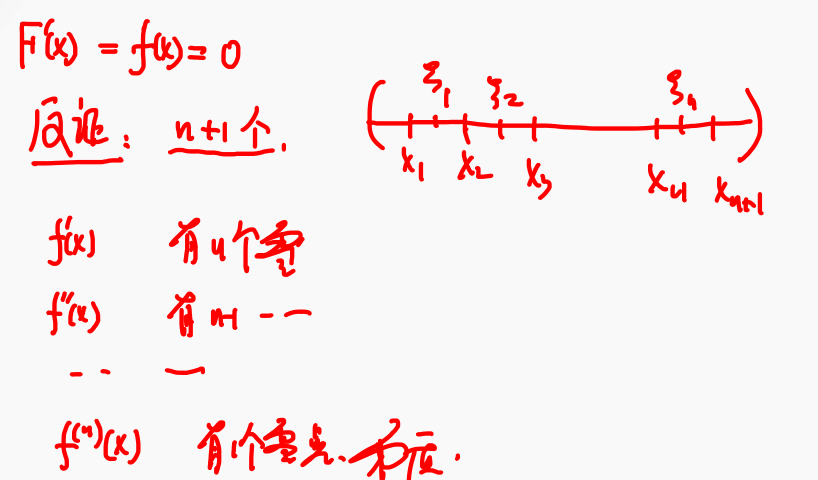 F'(x) = f(x) = 0
反证: n+1个.
ξ1 ξ2 ξn
x1 x2 x3 xn xn+1
f'(x) 有n个零
f''(x) 有n-1 -- —
-- —
f⁽ⁿ⁾(x) 有1个零点. 矛盾.